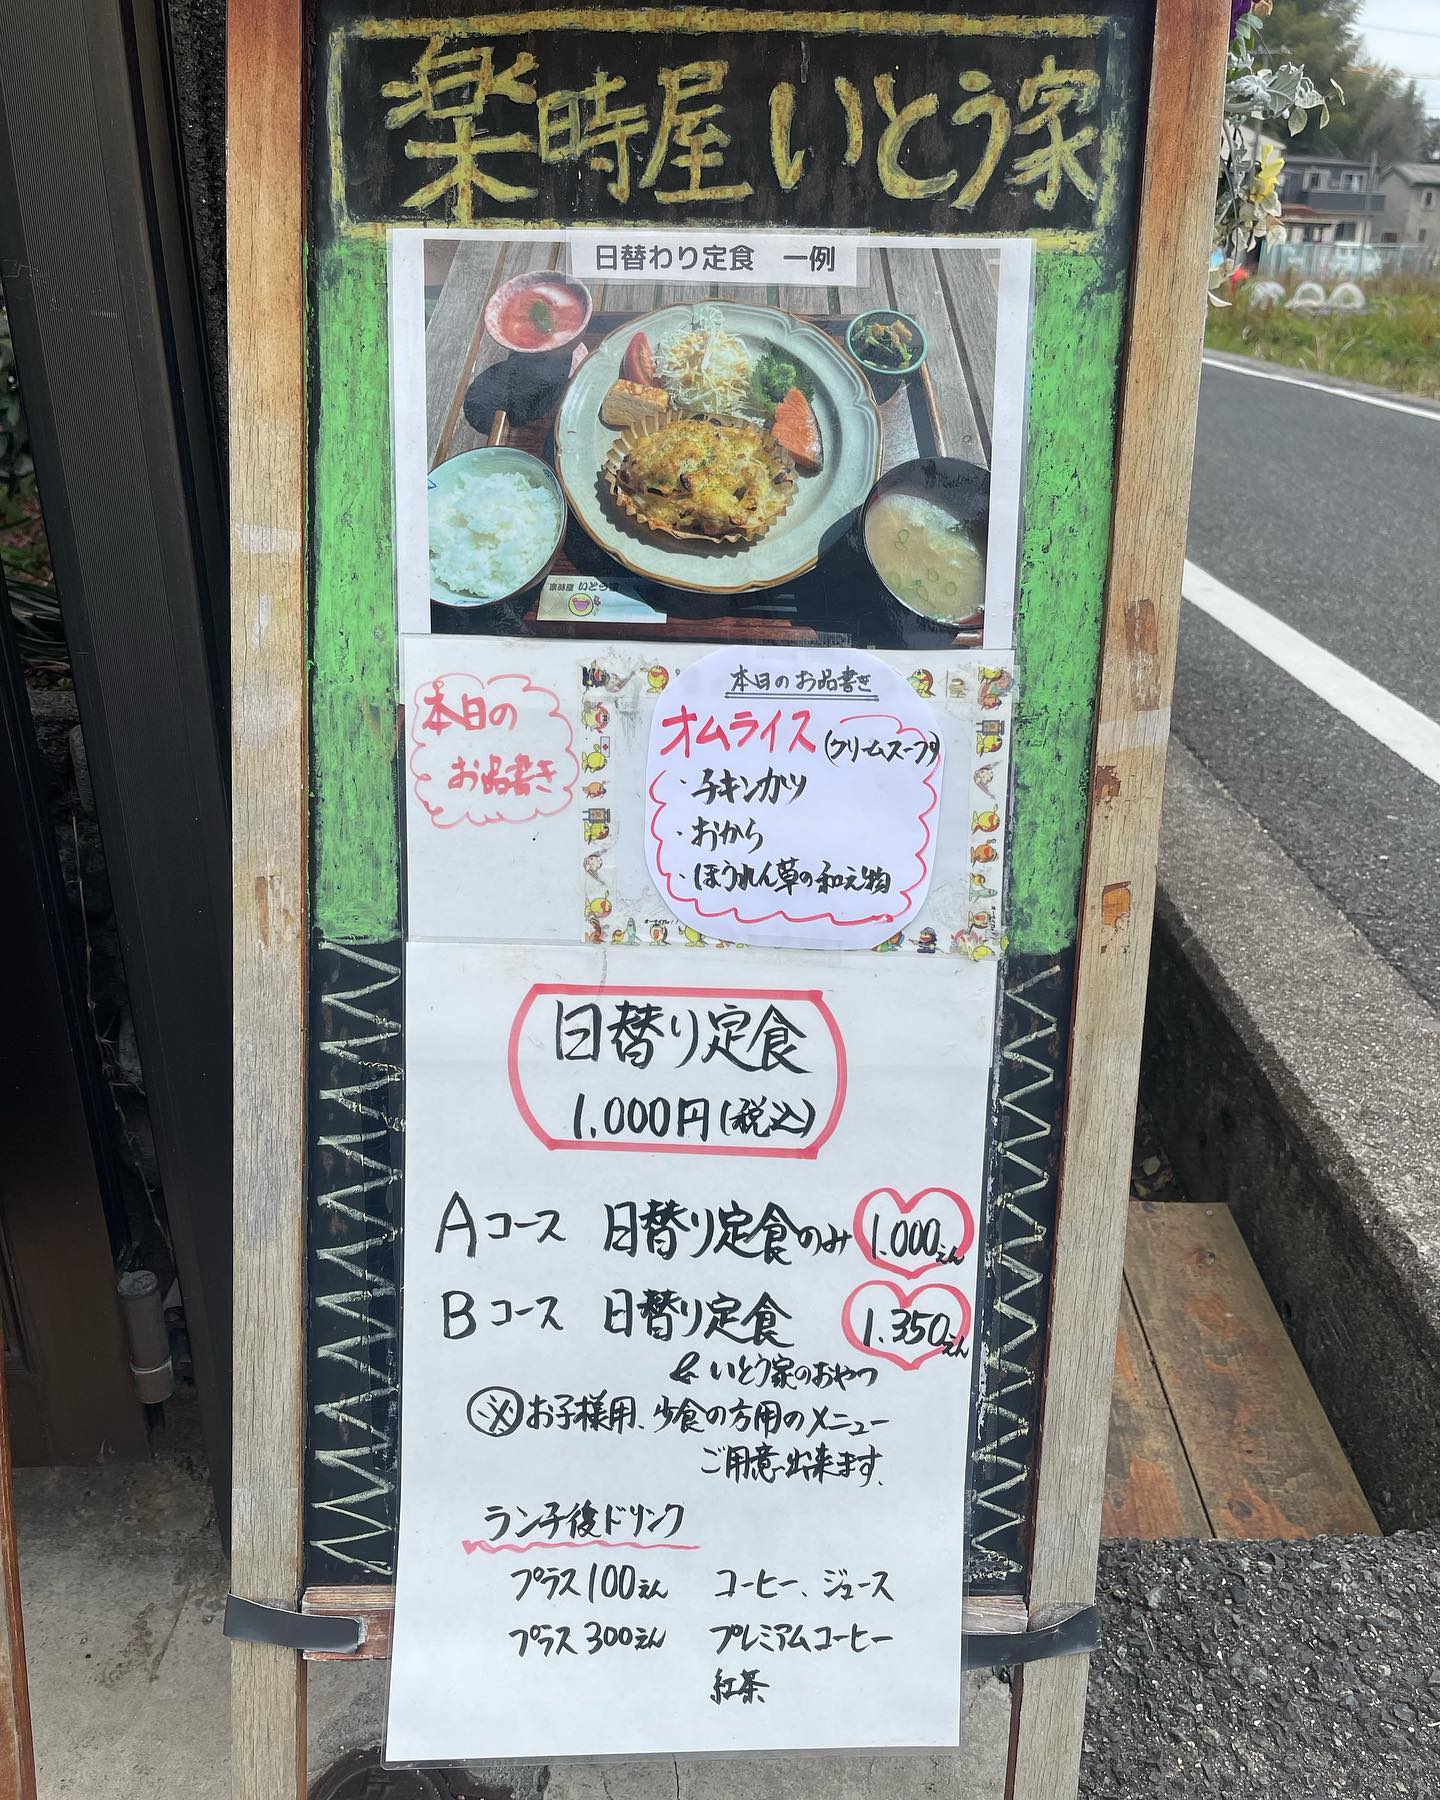 楽時屋 いとう家
日替わり定食 一例
楽時屋 いとう家
本日の
お品書き
本日のお品書き
オムライス(クリームスープ)
・チキンカツ
・おから
・ほうれん草の和え物
日替り定食
1.000円(税込)
Aコース 日替り定食のみ 1.000えん
Bコース 日替り定食 1.350えん
& いとう家のおやつ
※お子様用、少食の方用のメニュー
ご用意出来ます。
ランチ後ドリンク
プラス100えん コーヒー、ジュース
プラス300えん プレミアムコーヒー
紅茶